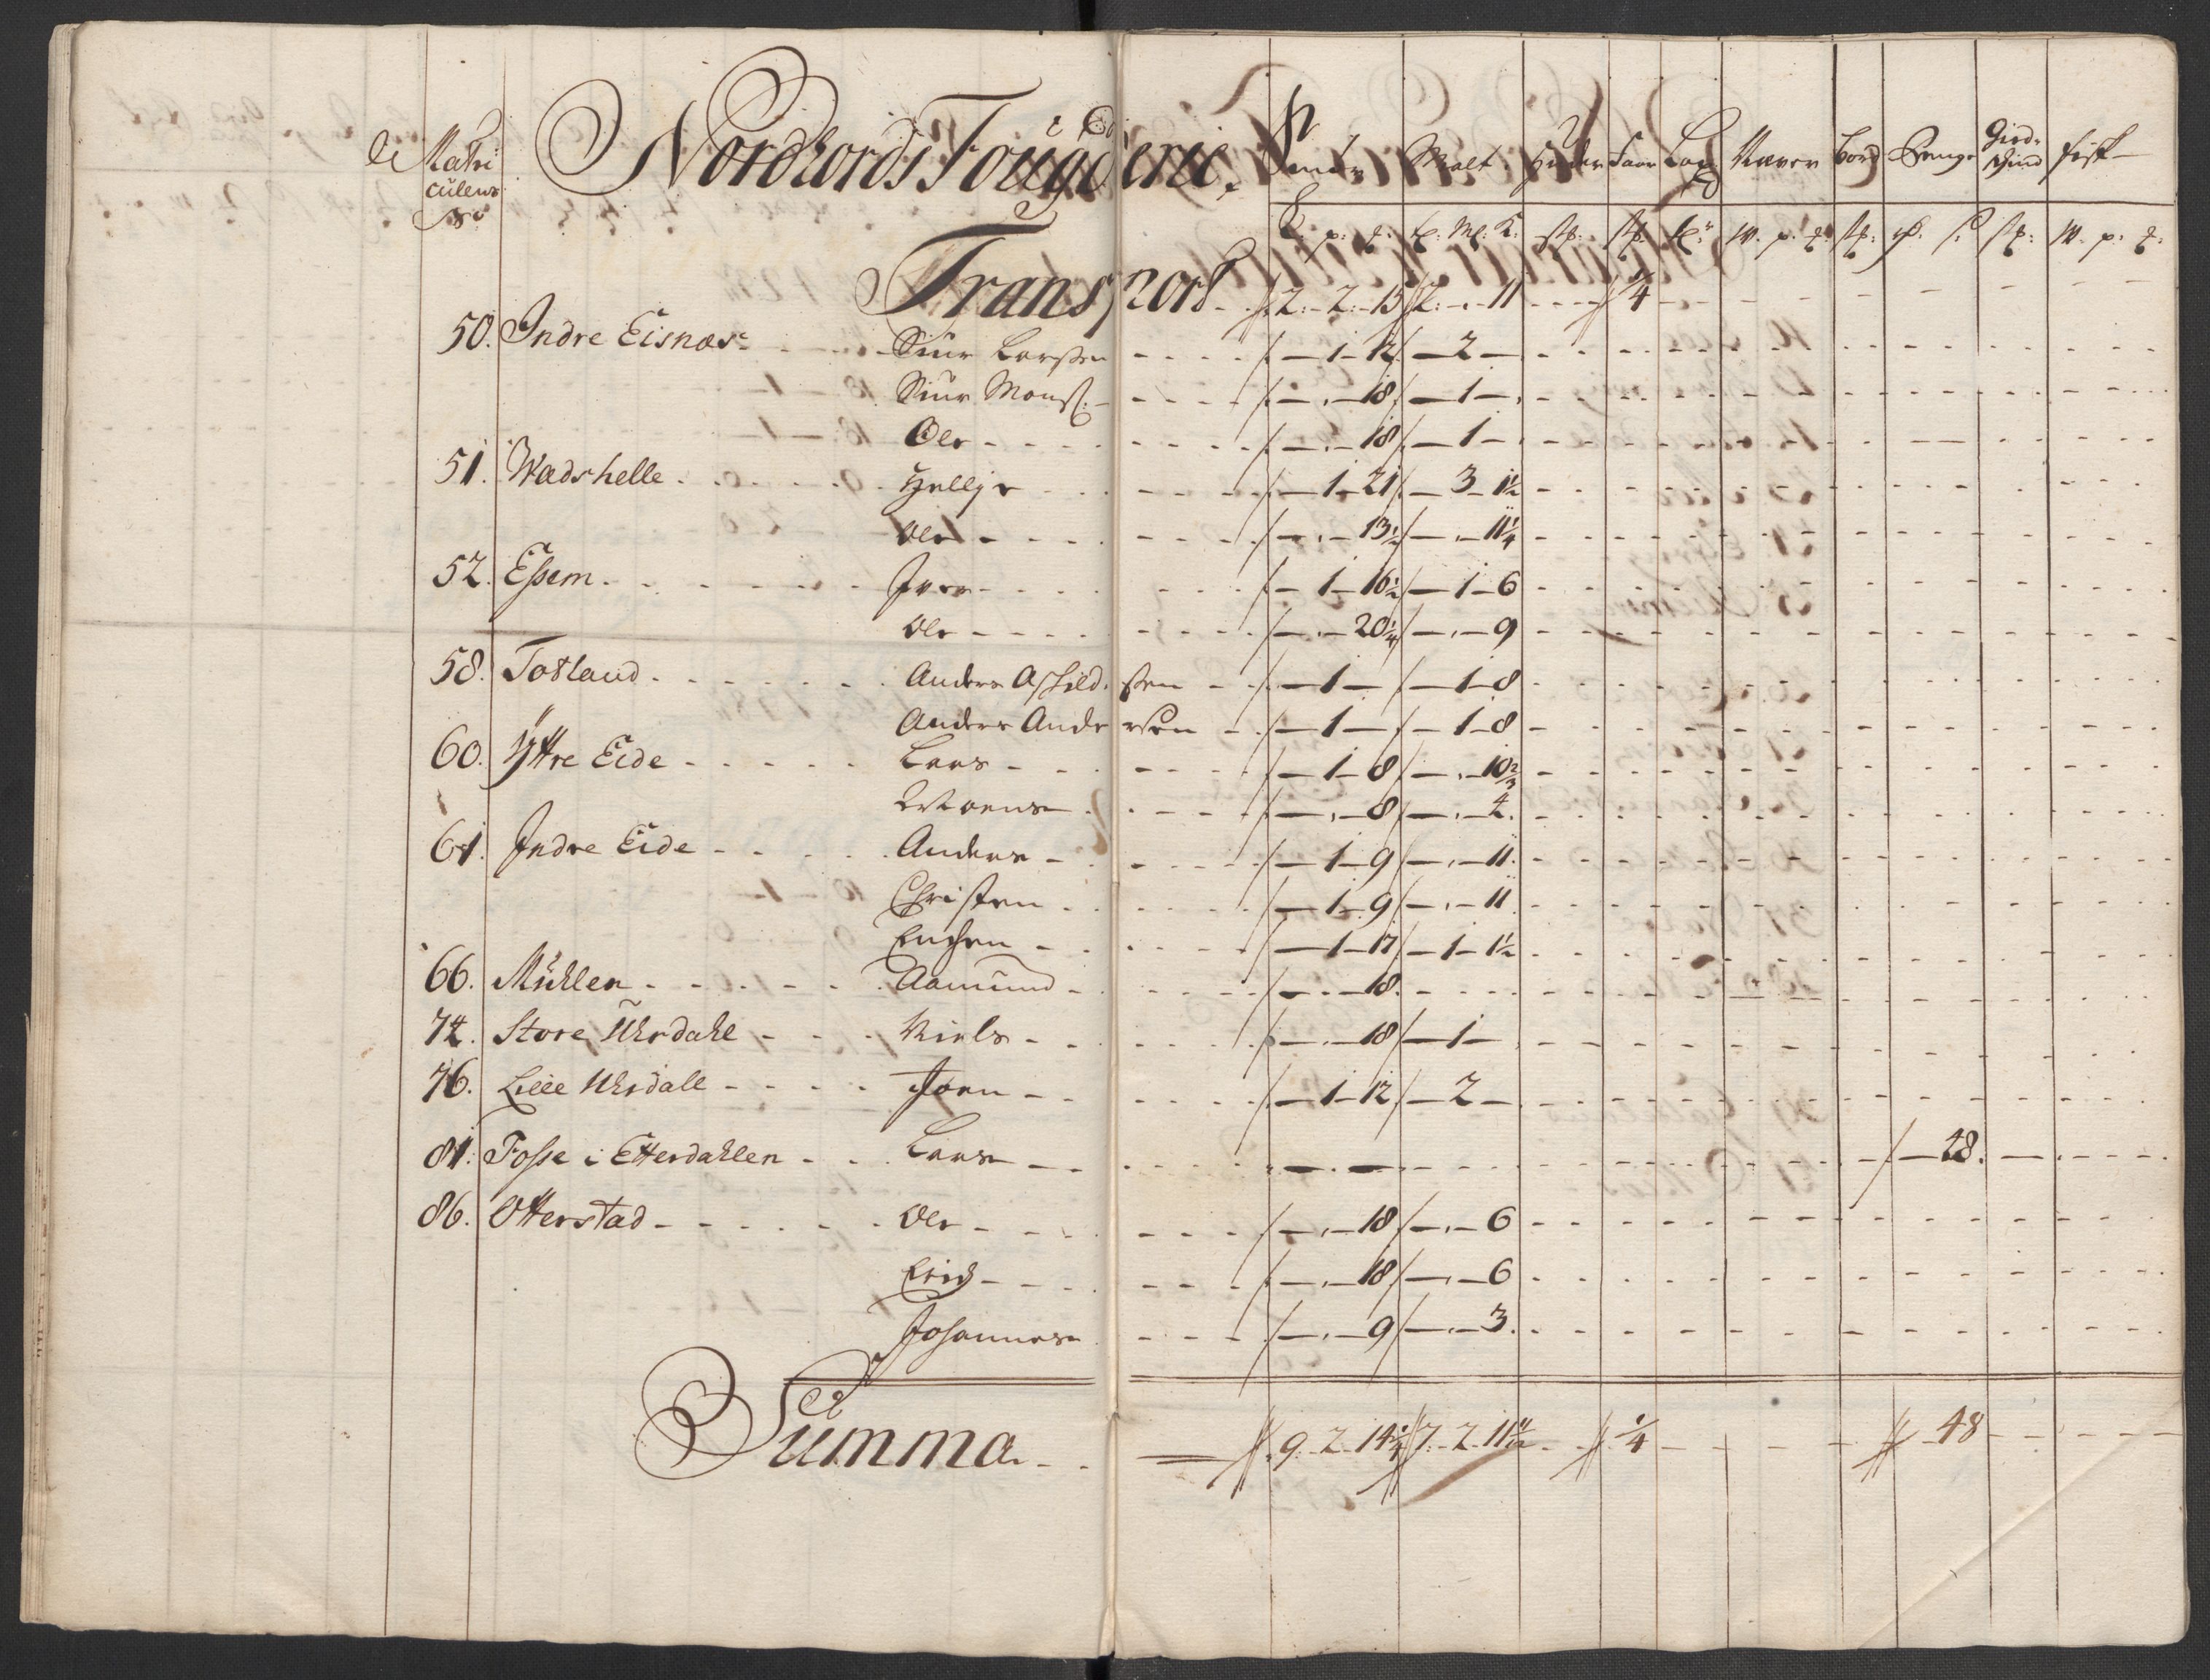 Matri
culens
No
Nordhords Fougderie.
Smør Malt Huder Faar Laug Næver Bord Penge Giedeskind Fisk
p: p: St: W. p: St: p: W. p:
Transport - 2: - 2: - 13 2: - - 11 - - - 1/4
50. Indre Eisnæs - Siur Larssen - - 1 - 12 - 2 -
Siur Monss: - - - 18 - 1 -
Ole - - - 18 - 1 -
51. Wadshelle - Hellje - 1 - 21 - 3 - 1 1/2
Ole - - - 13 1/2 - - 11 1/4
52. Essem - Iver - - 1 - 16 1/2 - 1 - 6
Ole - - - 20 1/4 - - 9
58. Totland - Anders Askildssen - - 1 - - 1 - 8
Anders Andersen - - 1 - - 1 - 8
60. Yttre Eide - Lars - - 1 - 8 - - 10 2/3
Moens - - - 8 - - 4.
61. Indre Eide - Anders - - 1 - 9 - - 11.
Christen - - 1 - 9 - - 11
- 1 - 17 - 1 - 1 1/2
66. Muhlen - Aamund - - - 18.
74. Store Uhrdahl - Niels - - - 18 - 1 -
76. Lille Uhrdall - Joen - - 1 - 12 - 2 -
81. Fosse i Etterdahlen - Lars - - - 48.
86. Otterstad - Ole - - - 18 - - 6
Erich - - - 18 - - 6
Johannes - - 9 - - 3.
Summa - - 9. 2. 14 1/4 7. 2. 11 11/12 - 1/4 - 48